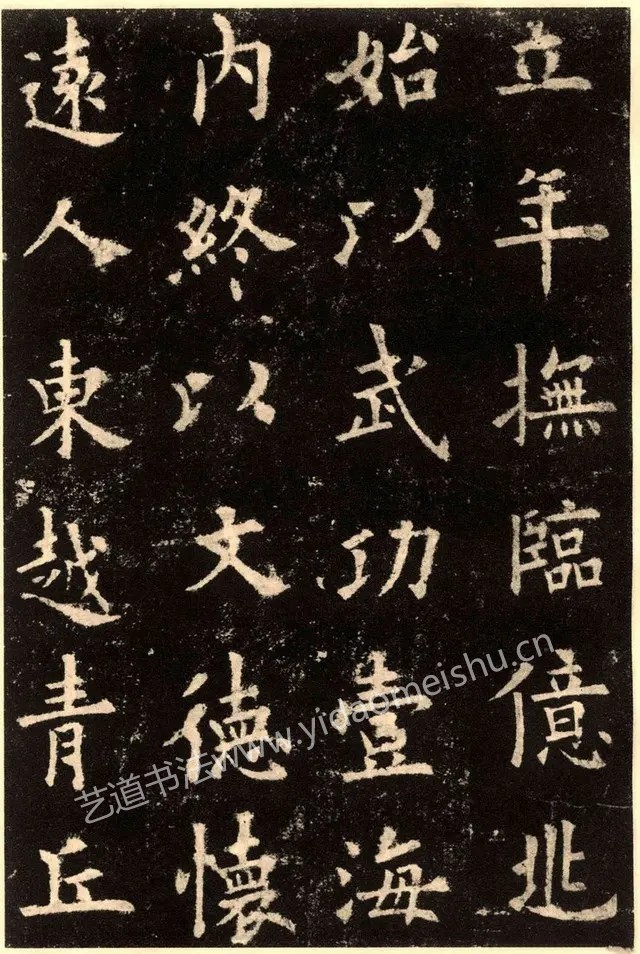 立年撫臨億兆
始以武功壹海
內終以文德懷
遠人東越青丘
艺道书法www.yidaomeishu.cn